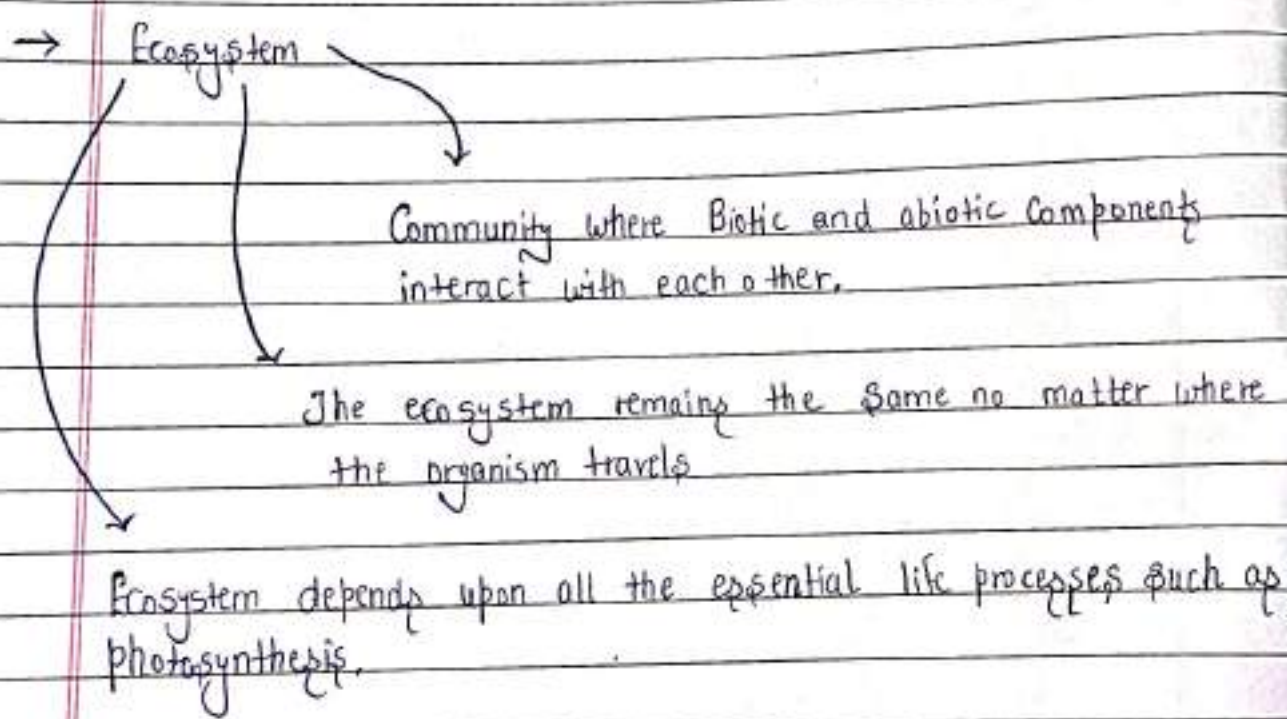 → Ecosystem
Community where Biotic and abiotic Components
interact with each other.
The ecosystem remains the same no matter where
the organism travels
Ecosystem depends upon all the essential life processes such as
photosynthesis.